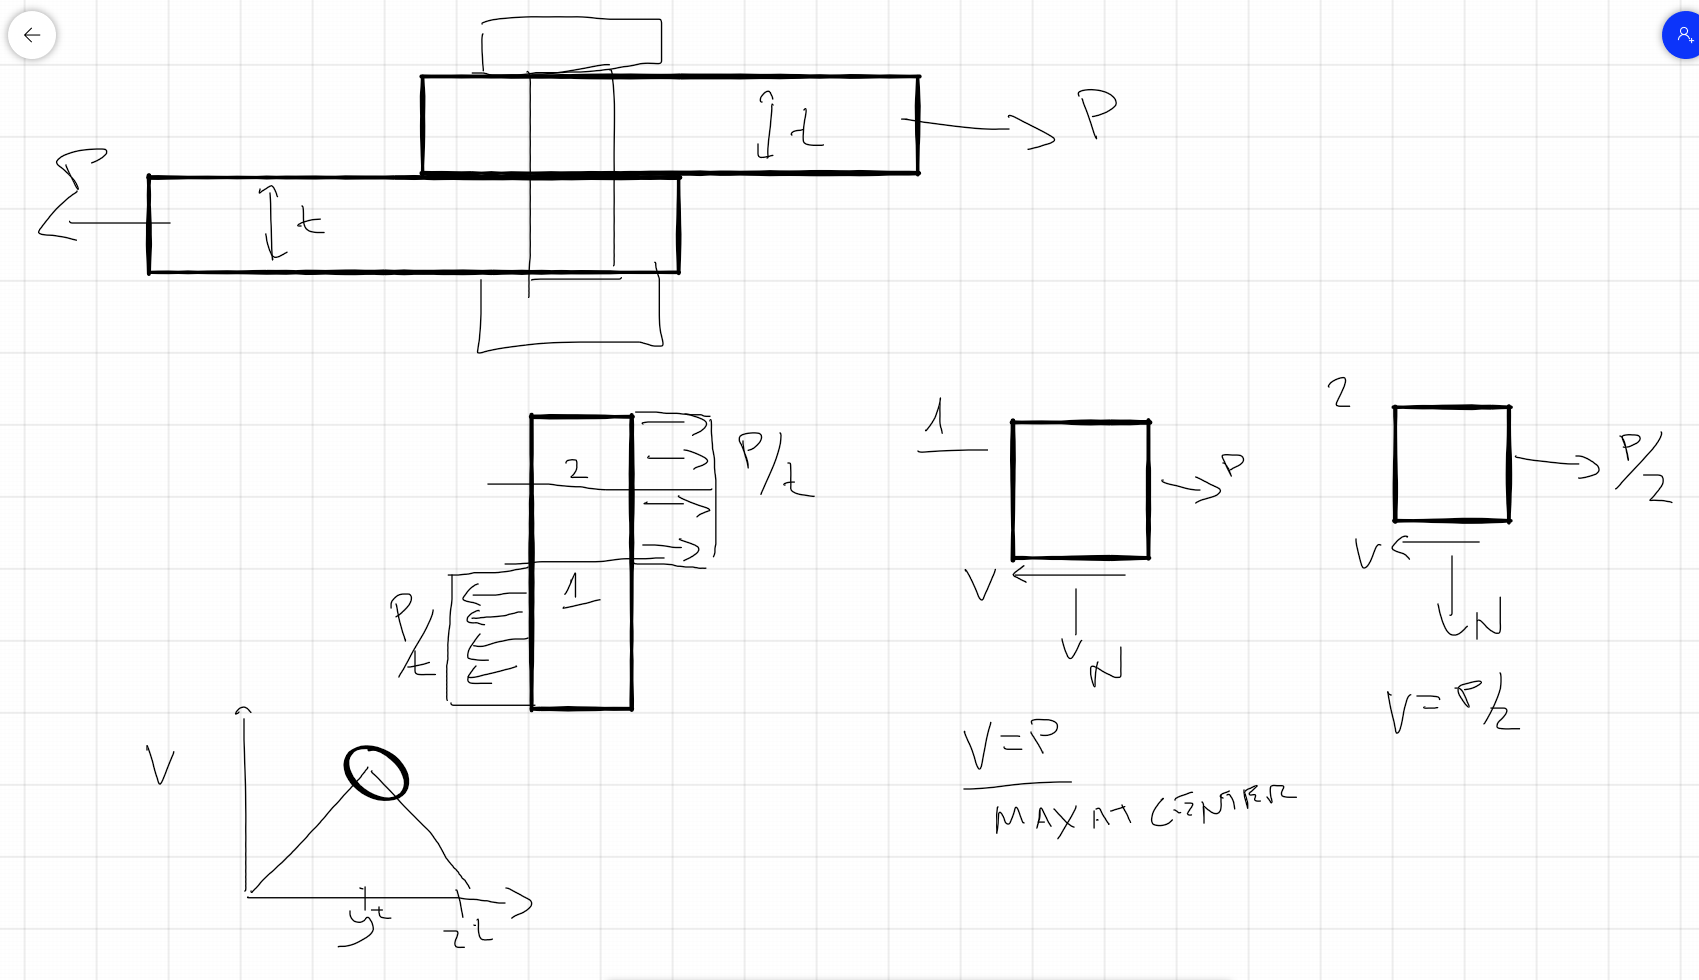 P
t
t
2
P/t
1
P/t
1
P
V
N
V=P
MAX AT CENTER
2
P/2
V
N
V=P/2
V
t
2t